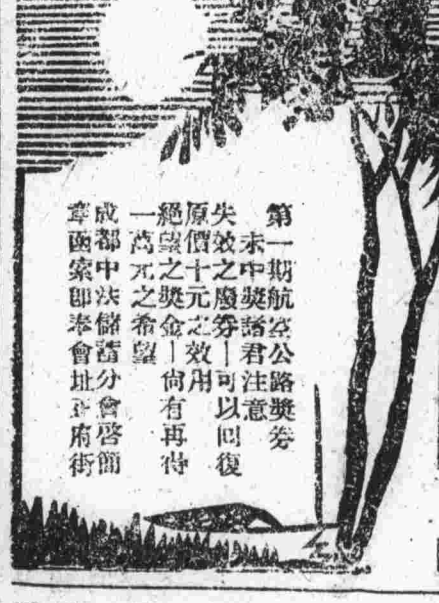 第一期航空公路獎券
未中獎諸君注意
失效之廢券—可以回復
原價十元之效用
絕望之獎金—尙有再得
一萬元之希望
成都中法儲蓄分會啓簡
章函索卽奉會址正府街